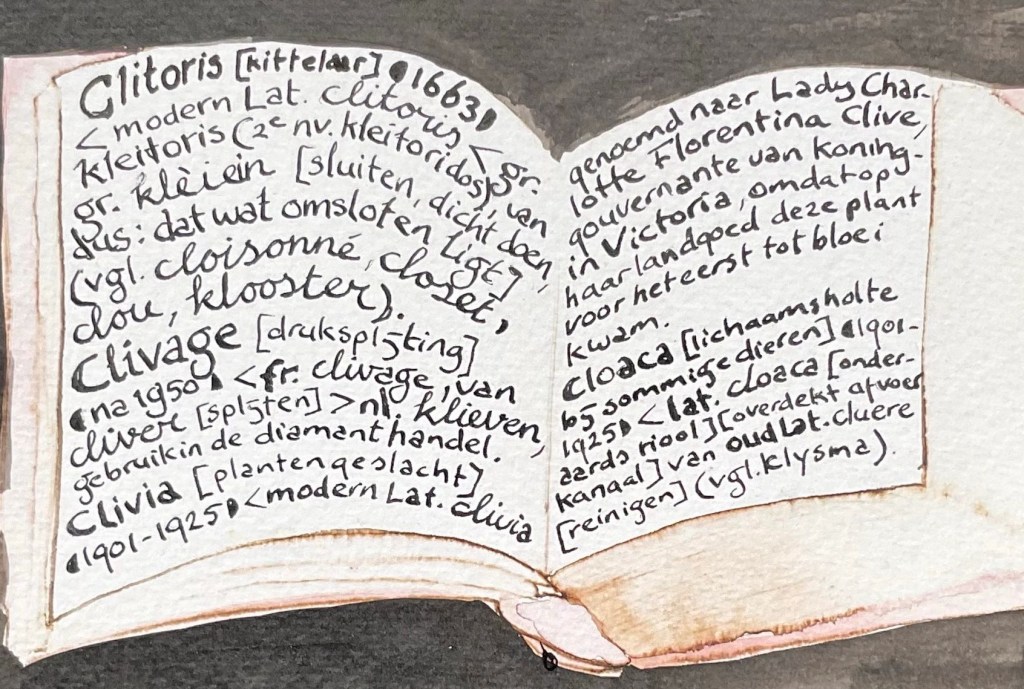 Clitoris [kittelaar] (1663)
< modern Lat. clitoris < gr.
kleitoris (2e nv. kleitoridos), van
gr. klèiein [sluiten, dicht doen,
dus: dat wat omsloten ligt]
(vgl. cloisonné, closet,
clou, klooster).
Clivage [druksplijting]
(na 1950) < fr. clivage, van
cliver [splijten] > nl. klieven,
gebruik in de diamanthandel.
Clivia [plantengeslacht]
(1901-1925) < modern Lat. clivia
genoemd naar Lady Char-
lotte Florentina Clive,
gouvernante van koning-
in Victoria, omdat op
haar landgoed deze plant
voor het eerst tot bloei
kwam.
Cloaca [lichaamsholte
bij sommige dieren] (1901-
1925) < lat. cloaca [onder-
aards riool] [overdekt afvoer
kanaal] van oud Lat. cluere
[reinigen] (vgl. klysma).